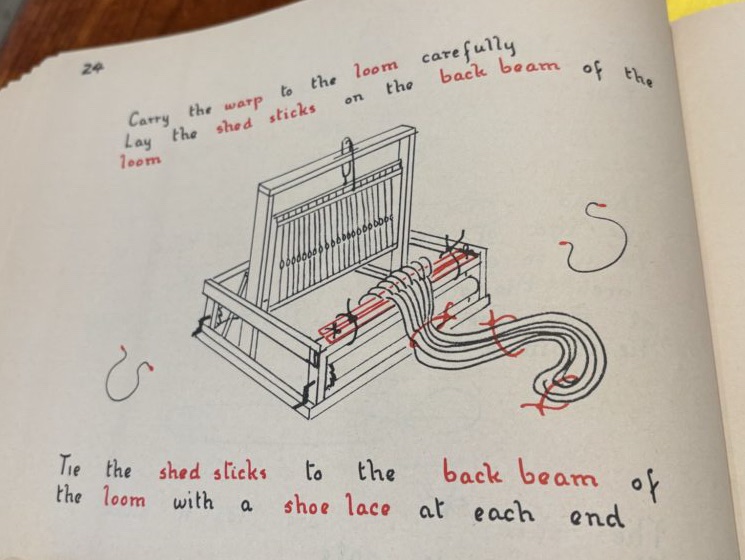 24
Carry the warp to the loom carefully
Lay the shed sticks on the back beam of the
loom
Tie the shed sticks to the back beam of
the loom with a shoe lace at each end